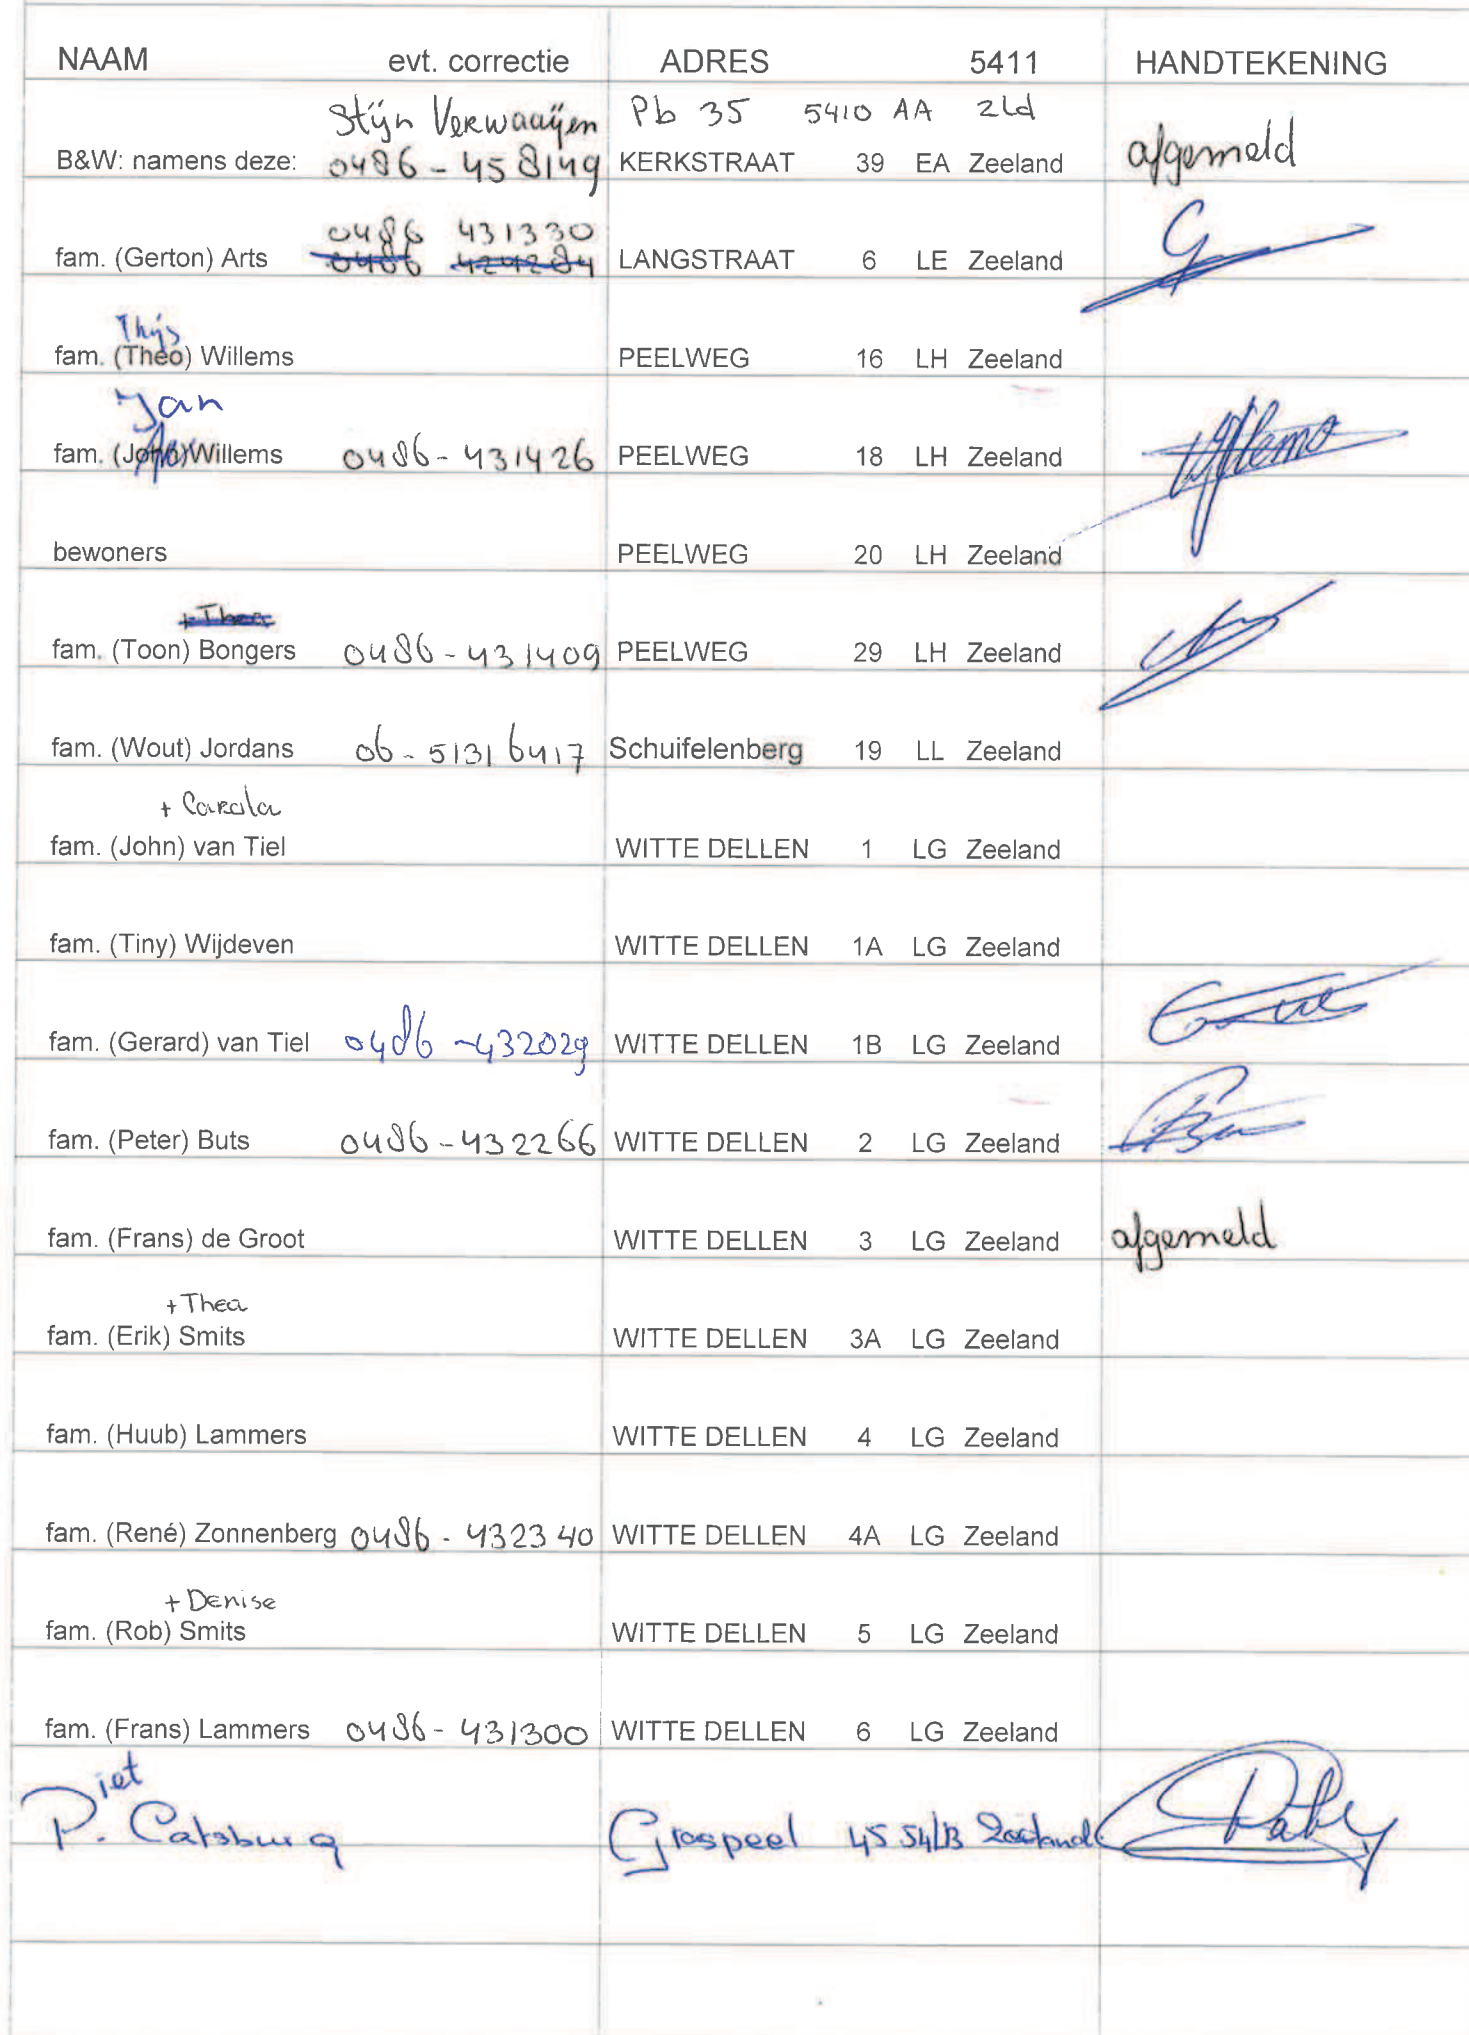 NAAM evt. correctie ADRES 5411 HANDTEKENING
Stijn Verwaaijen Pb 35 5410 AA Zld
B&W: namens deze: 0486-458149 KERKSTRAAT 39 EA Zeeland afgemeld
0486 431330
fam. (Gerton) Arts 0486 424284 LANGSTRAAT 6 LE Zeeland
Thijs
fam. (Theo) Willems PEELWEG 16 LH Zeeland
Jan
fam. (John) Willems 0486-431426 PEELWEG 18 LH Zeeland
bewoners PEELWEG 20 LH Zeeland
+ Thea
fam. (Toon) Bongers 0486-431409 PEELWEG 29 LH Zeeland
fam. (Wout) Jordans 06-51316417 Schuifelenberg 19 LL Zeeland
+ Carola
fam. (John) van Tiel WITTE DELLEN 1 LG Zeeland
fam. (Tiny) Wijdeven WITTE DELLEN 1A LG Zeeland
fam. (Gerard) van Tiel 0486-432029 WITTE DELLEN 1B LG Zeeland
fam. (Peter) Buts 0486-432266 WITTE DELLEN 2 LG Zeeland
fam. (Frans) de Groot WITTE DELLEN 3 LG Zeeland afgemeld
+ Thea
fam. (Erik) Smits WITTE DELLEN 3A LG Zeeland
fam. (Huub) Lammers WITTE DELLEN 4 LG Zeeland
fam. (René) Zonnenberg 0486-432340 WITTE DELLEN 4A LG Zeeland
+ Denise
fam. (Rob) Smits WITTE DELLEN 5 LG Zeeland
fam. (Frans) Lammers 0486-431300 WITTE DELLEN 6 LG Zeeland
iet
P. Catsburg Graspeel 45 Zeeland